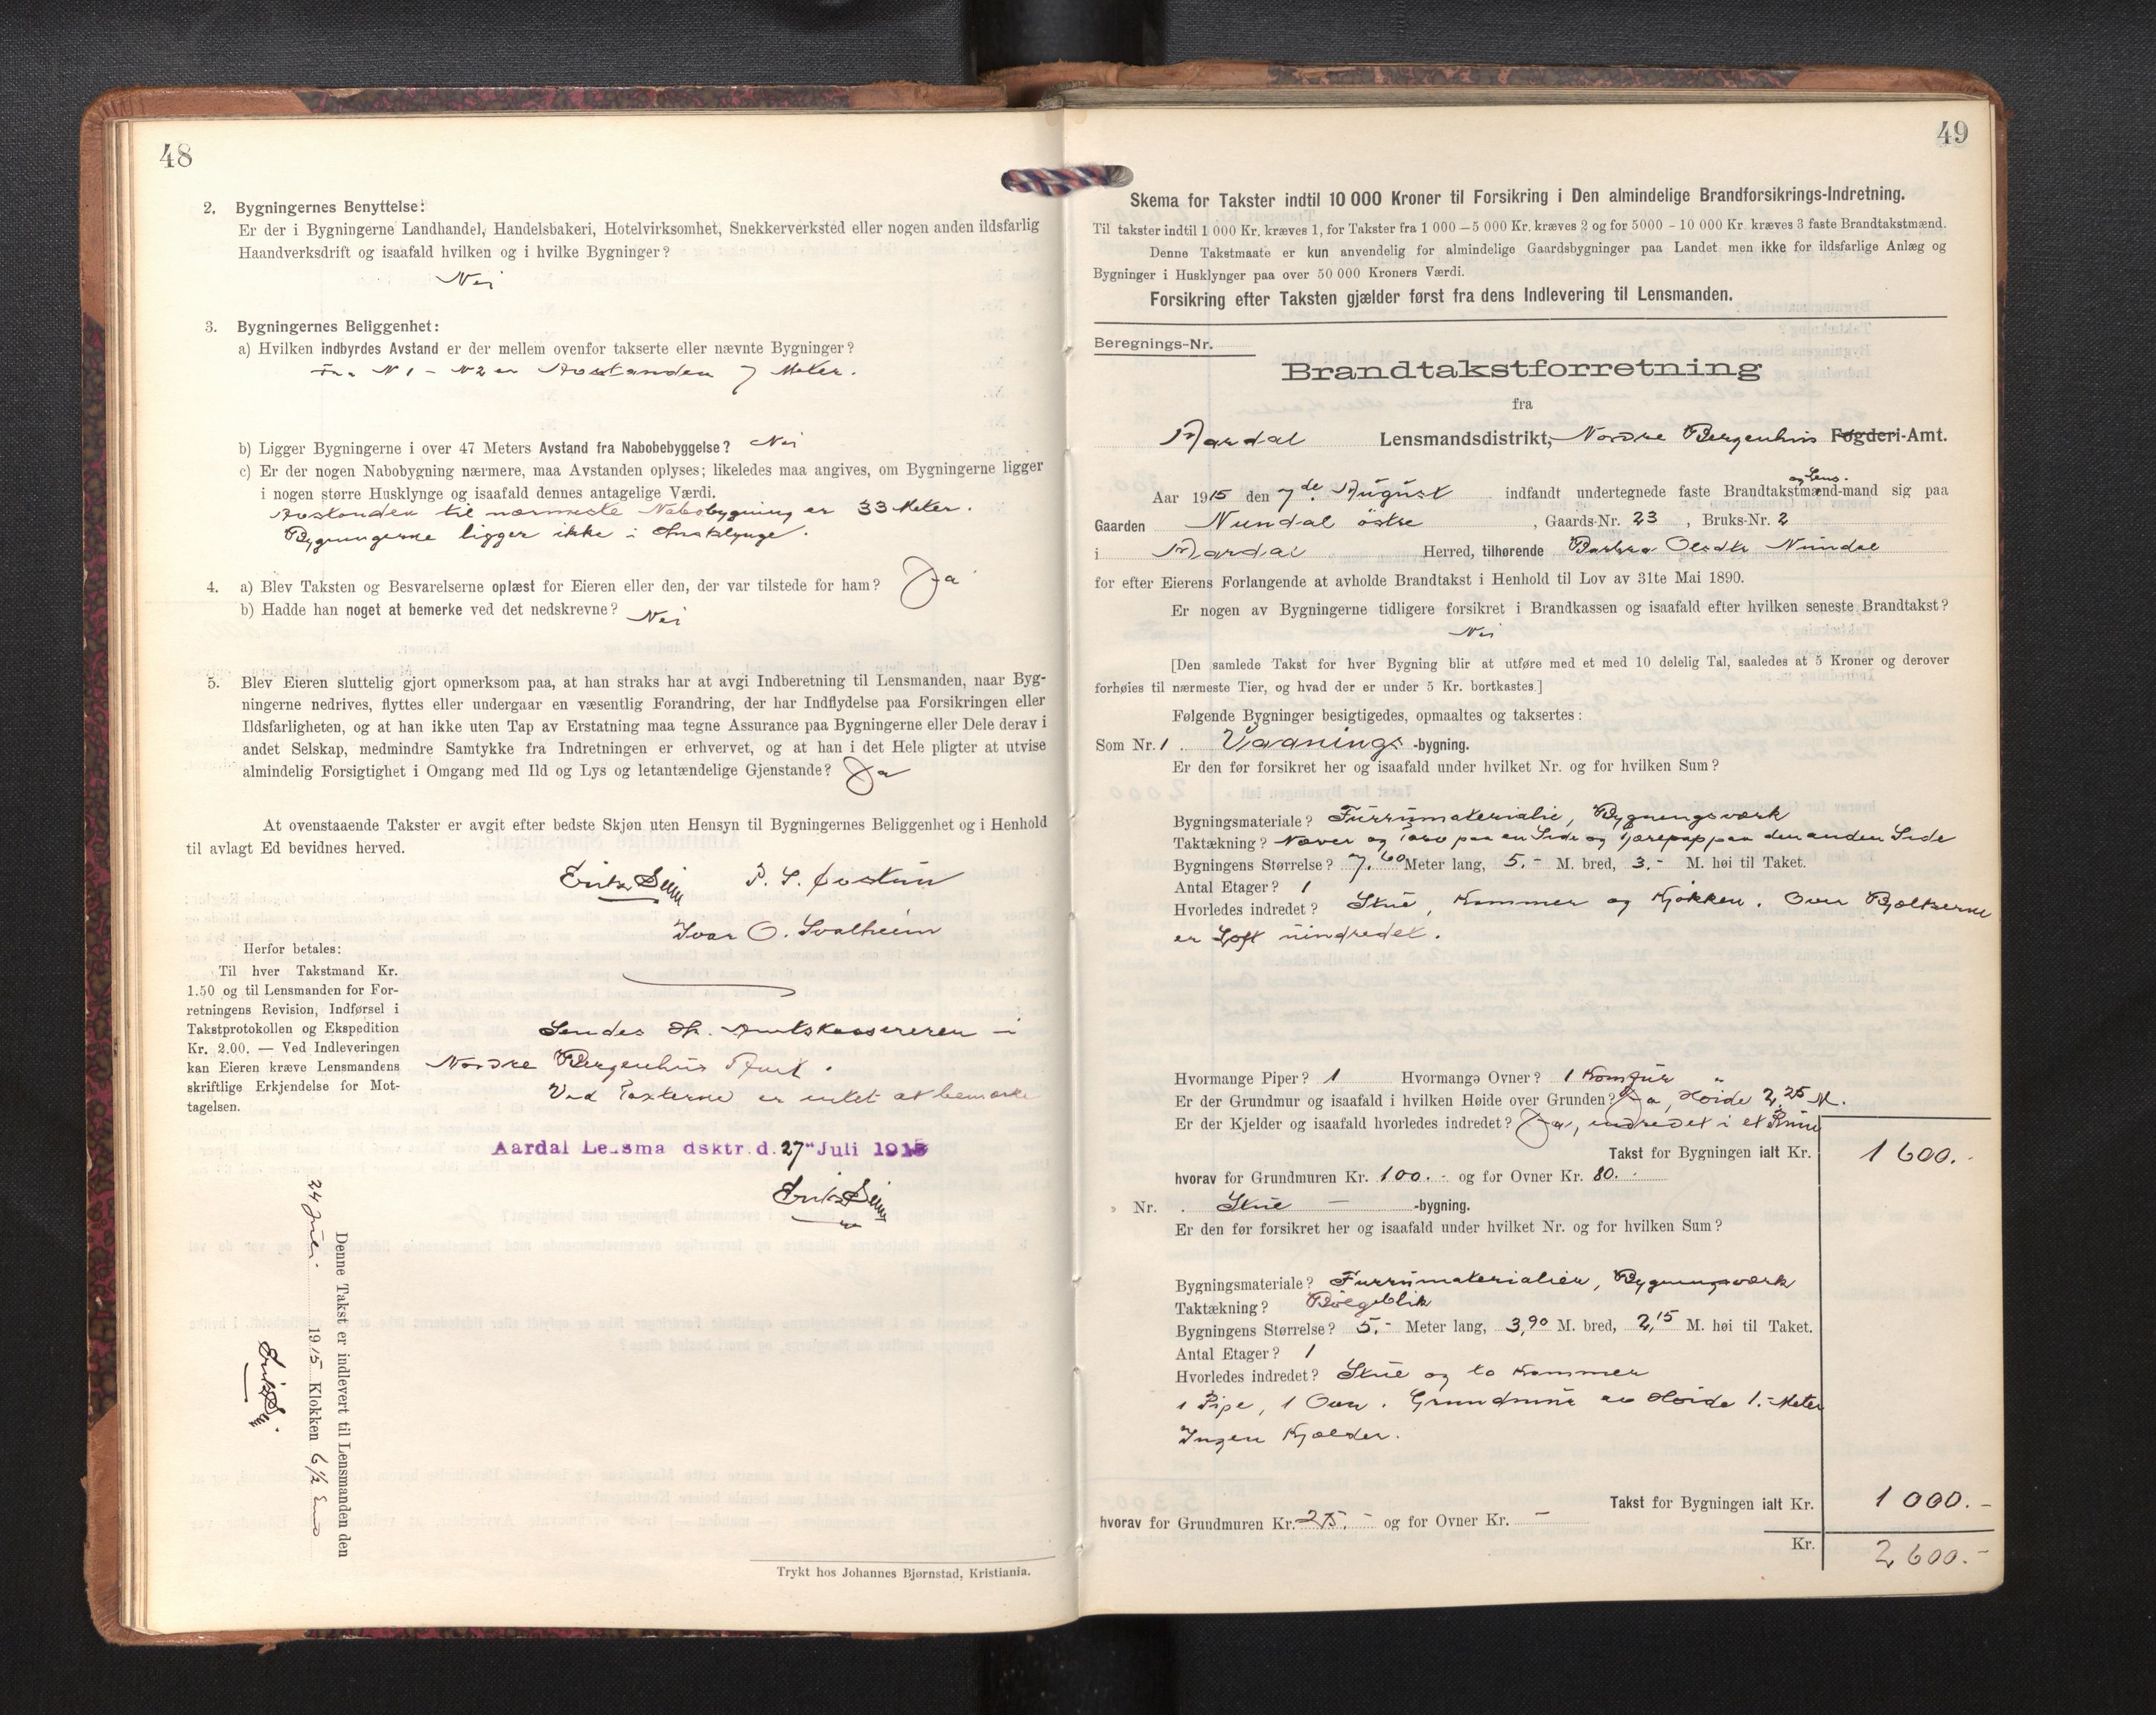 48
2. Bygningernes Benyttelse:
Er der i Bygningerne Landhandel, Handelsbakeri, Hotelvirksomhet, Snekkerverksted eller nogen anden ildsfarlig
Haandverksdrift og isaafald hvilken og i hvilke Bygninger?
Nei
3. Bygningernes Beliggenhet:
a) Hvilken indbyrdes Avstand er der mellem ovenfor takserte eller nævnte Bygninger?
Fra N 1 - N 2 er Avstanden 7 Meter.
b) Ligger Bygningerne i over 47 Meters Avstand fra Nabobebyggelse? Nei
c) Er der nogen Nabobygning nærmere, maa Avstanden oplyses; likeledes maa angives, om Bygningerne ligger
i nogen større Husklynge og isaafald dennes antagelige Værdi.
Avstanden til nærmeste Nabobygning er 33 Meter.
Bygningerne ligger ikke i Husklynge.
4. a) Blev Taksten og Besvarelserne oplæst for Eieren eller den, der var tilstede for ham? Ja
b) Hadde han noget at bemerke ved det nedskrevne? Nei
5. Blev Eieren sluttelig gjort opmerksom paa, at han straks har at avgi Indberetning til Lensmanden, naar Byg-
ningerne nedrives, flyttes eller undergaar en væsentlig Forandring, der har Indflydelse paa Forsikringen eller
Ildsfarligheten, og at han ikke uten Tap av Erstatning maa tegne Assurance paa Bygningerne eller Dele derav i
andet Selskap, medmindre Samtykke fra Indretningen er erhvervet, og at han i det Hele pligter at utvise
almindelig Forsigtighet i Omgang med Ild og Lys og letantændelige Gjenstande? Ja
At ovenstaaende Takster er avgit efter bedste Skjøn uten Hensyn til Bygningernes Beliggenhet og i Henhold
til avlagt Ed bevidnes herved.
Erik Seim P. S. Øvstun
Ivar O. Svalheim
Herfor betales:
Til hver Takstmand Kr.
1.50 og til Lensmanden for For-
retningens Revision, Indførsel i
Takstprotokollen og Ekspedition
Kr. 2.00. — Ved Indleveringen
kan Eieren kræve Lensmandens
skriftlige Erkjendelse for Mot-
tagelsen.
Sendes Hr. Amtskassereren i
Nordre Bergenhus Amt.
Ved Taxterne er intet at bemærke
Aardal Lensma dsktr. d. 27" Juli 1915
Erik Seim
Denne Takst er indlevert til Lensmanden den
24 Juli 1915 Klokken 6 1/2
Erik Seim
Trykt hos Johannes Bjørnstad, Kristiania.
49
Skema for Takster indtil 10 000 Kroner til Forsikring i Den almindelige Brandforsikrings-Indretning.
Til takster indtil 1 000 Kr. kræves 1, for Takster fra 1 000 — 5 000 Kr. kræves 2 og for 5000 - 10 000 Kr. kræves 3 faste Brandtakstmænd.
Denne Takstmaate er kun anvendelig for almindelige Gaardsbygninger paa Landet men ikke for ildsfarlige Anlæg og
Bygninger i Husklynger paa over 50 000 Kroners Værdi.
Forsikring efter Taksten gjælder først fra dens Indlevering til Lensmanden.
Beregnings-Nr.
Brandtakstforretning
fra
Aardal Lensmandsdistrikt, Nordre Bergenhus Fogderi-Amt.
og Lens.
Aar 1915 den 7de August indfandt undertegnede faste Brandtakstmænd-mand sig paa
Gaarden Nundal østre, Gaards-Nr. 23, Bruks-Nr. 2
i Aardal Herred, tilhørende Barbra Olsdtr Nundal
for efter Eierens Forlangende at avholde Brandtakst i Henhold til Lov av 31te Mai 1890.
Er nogen av Bygningerne tidligere forsikret i Brandkassen og isaafald efter hvilken seneste Brandtakst?
Nei
[Den samlede Takst for hver Bygning blir at utføre med et med 10 delelig Tal, saaledes at 5 Kroner og derover
forhøies til nærmeste Tier, og hvad der er under 5 Kr. bortkastes.]
Følgende Bygninger besigtigedes, opmaaltes og taksertes:
Som Nr. 1 Vaanings-bygning.
Er den før forsikret her og isaafald under hvilket Nr. og for hvilken Sum?
Bygningsmateriale? Furrumaterialie, Bygningsværk
Taktækning? Næver og Torv paa en Side og Tjærepap paa den anden Side
Bygningens Størrelse? 7.60 Meter lang, 5.- M. bred, 3.- M. høi til Taket.
Antal Etager? 1
Hvorledes indredet? Stue, Kammer og Kjøkken. Over Bjelkerne
er Loft uindredet.
Hvormange Piper? 1 Hvormange Ovner? 1 Komfur
Er der Grundmur og isaafald i hvilken Høide over Grunden? Ja, Høide 2,25 M.
Er der Kjelder og isaafald hvorledes indredet? Ja, indredet i et Rum
Takst for Bygningen ialt Kr. 1600.-
hvorav for Grundmuren Kr. 100.- og for Ovner Kr. 80.-
» Nr. Stue-bygning.
Er den før forsikret her og isaafald under hvilket Nr. og for hvilken Sum?
Bygningsmateriale? Furrumaterialier, Bygningsværk
Taktækning? Bølgeblik
Bygningens Størrelse? 5.- Meter lang, 3,90 M. bred, 2,15 M. høi til Taket.
Antal Etager? 1
Hvorledes indredet? Stue og to Kammer
1 Pipe, 1 Ovn. Grundmur av Høide 1.- Meter
Ingen Kjælder.
Takst for Bygningen ialt Kr. 1000.-
hvorav for Grundmuren Kr. 25.- og for Ovner Kr. -
Kr. 2600.-